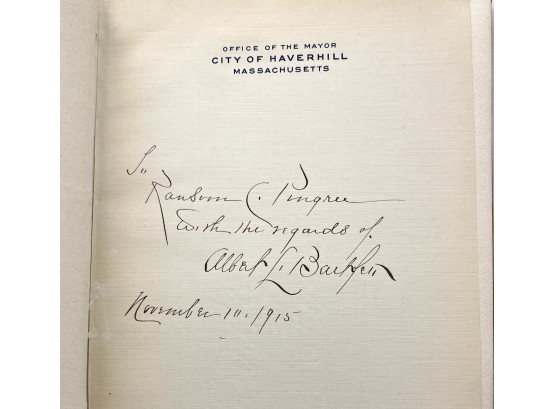 OFFICE OF THE MAYOR
CITY OF HAVERHILL
MASSACHUSETTS
To
Ransom C. Pingree
with the regards of.
Albert L. Bartlett
November 10, 1915